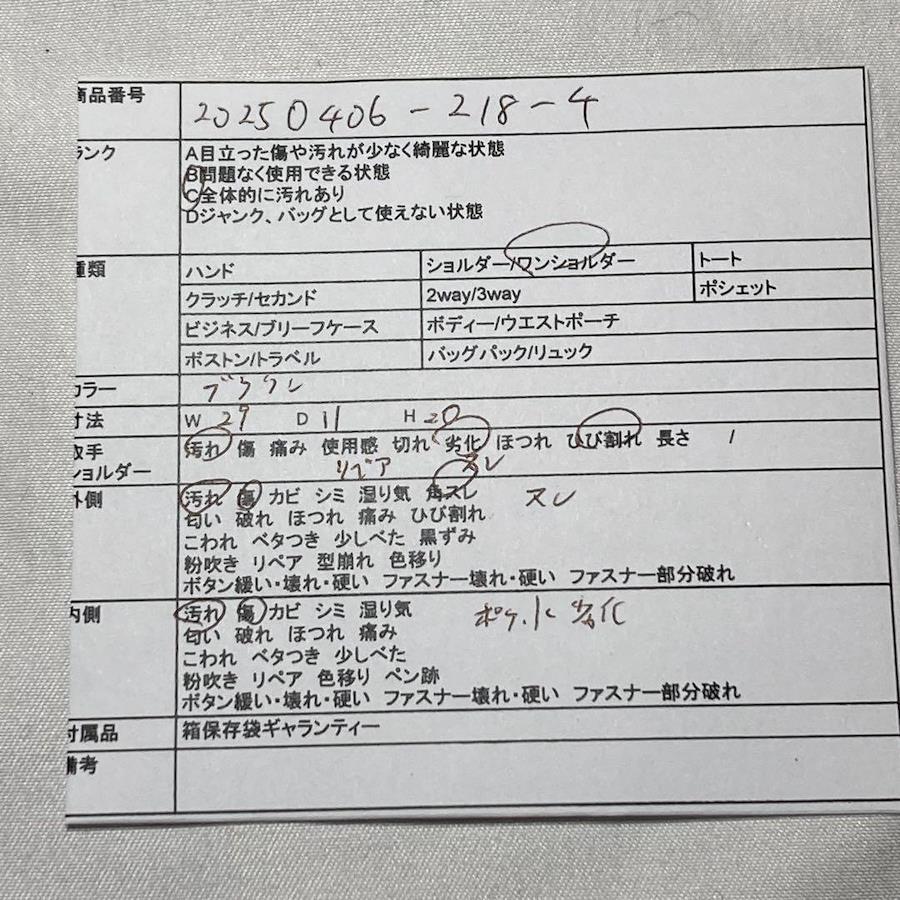 商品番号 20250406-218-4
ランク A目立った傷や汚れが少なく綺麗な状態
B問題なく使用できる状態
C全体的に汚れあり
Dジャンク、バッグとして使えない状態
種類 ハンド ショルダー/ワンショルダー トート
クラッチ/セカンド 2way/3way ポシェット
ビジネス/ブリーフケース ボディー/ウエストポーチ
ボストン/トラベル バッグパック/リュック
カラー ブラウン
寸法 W 29 D 11 H 20
取手 汚れ 傷 痛み 使用感 切れ 劣化 ほつれ ひび割れ 長さ /
ショルダー リペア スレ
外側 汚れ 傷 カビ シミ 湿り気 角スレ スレ
匂い 破れ ほつれ 痛み ひび割れ
こわれ ベタつき 少しべた 黒ずみ
粉吹き リペア 型崩れ 色移り
ボタン緩い・壊れ・硬い ファスナー壊れ・硬い ファスナー部分破れ
内側 汚れ 傷 カビ シミ 湿り気 ポケット劣化
匂い 破れ ほつれ 痛み
こわれ ベタつき 少しべた
粉吹き リペア 色移り ペン跡
ボタン緩い・壊れ・硬い ファスナー壊れ・硬い ファスナー部分破れ
付属品 箱保存袋ギャランティー
備考